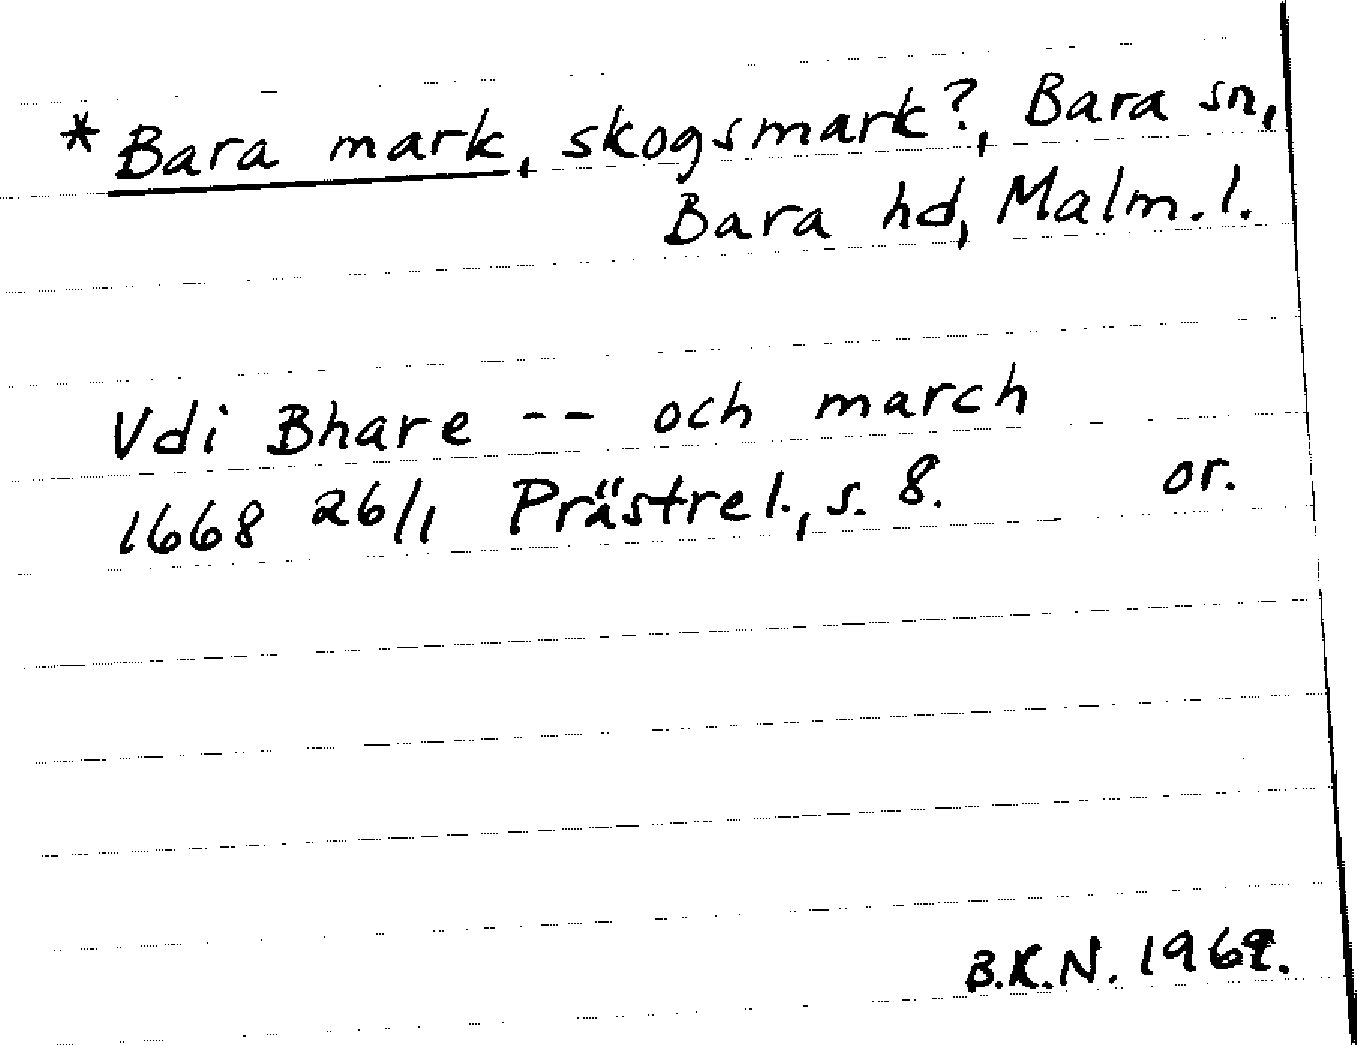 *Bara mark, skogsmark?, Bara sn,
Bara hd, Malm. l.
Vdi Bhare -- och march
1668 26/1 Prästrel., s. 8. or.
B.K.N. 1969.